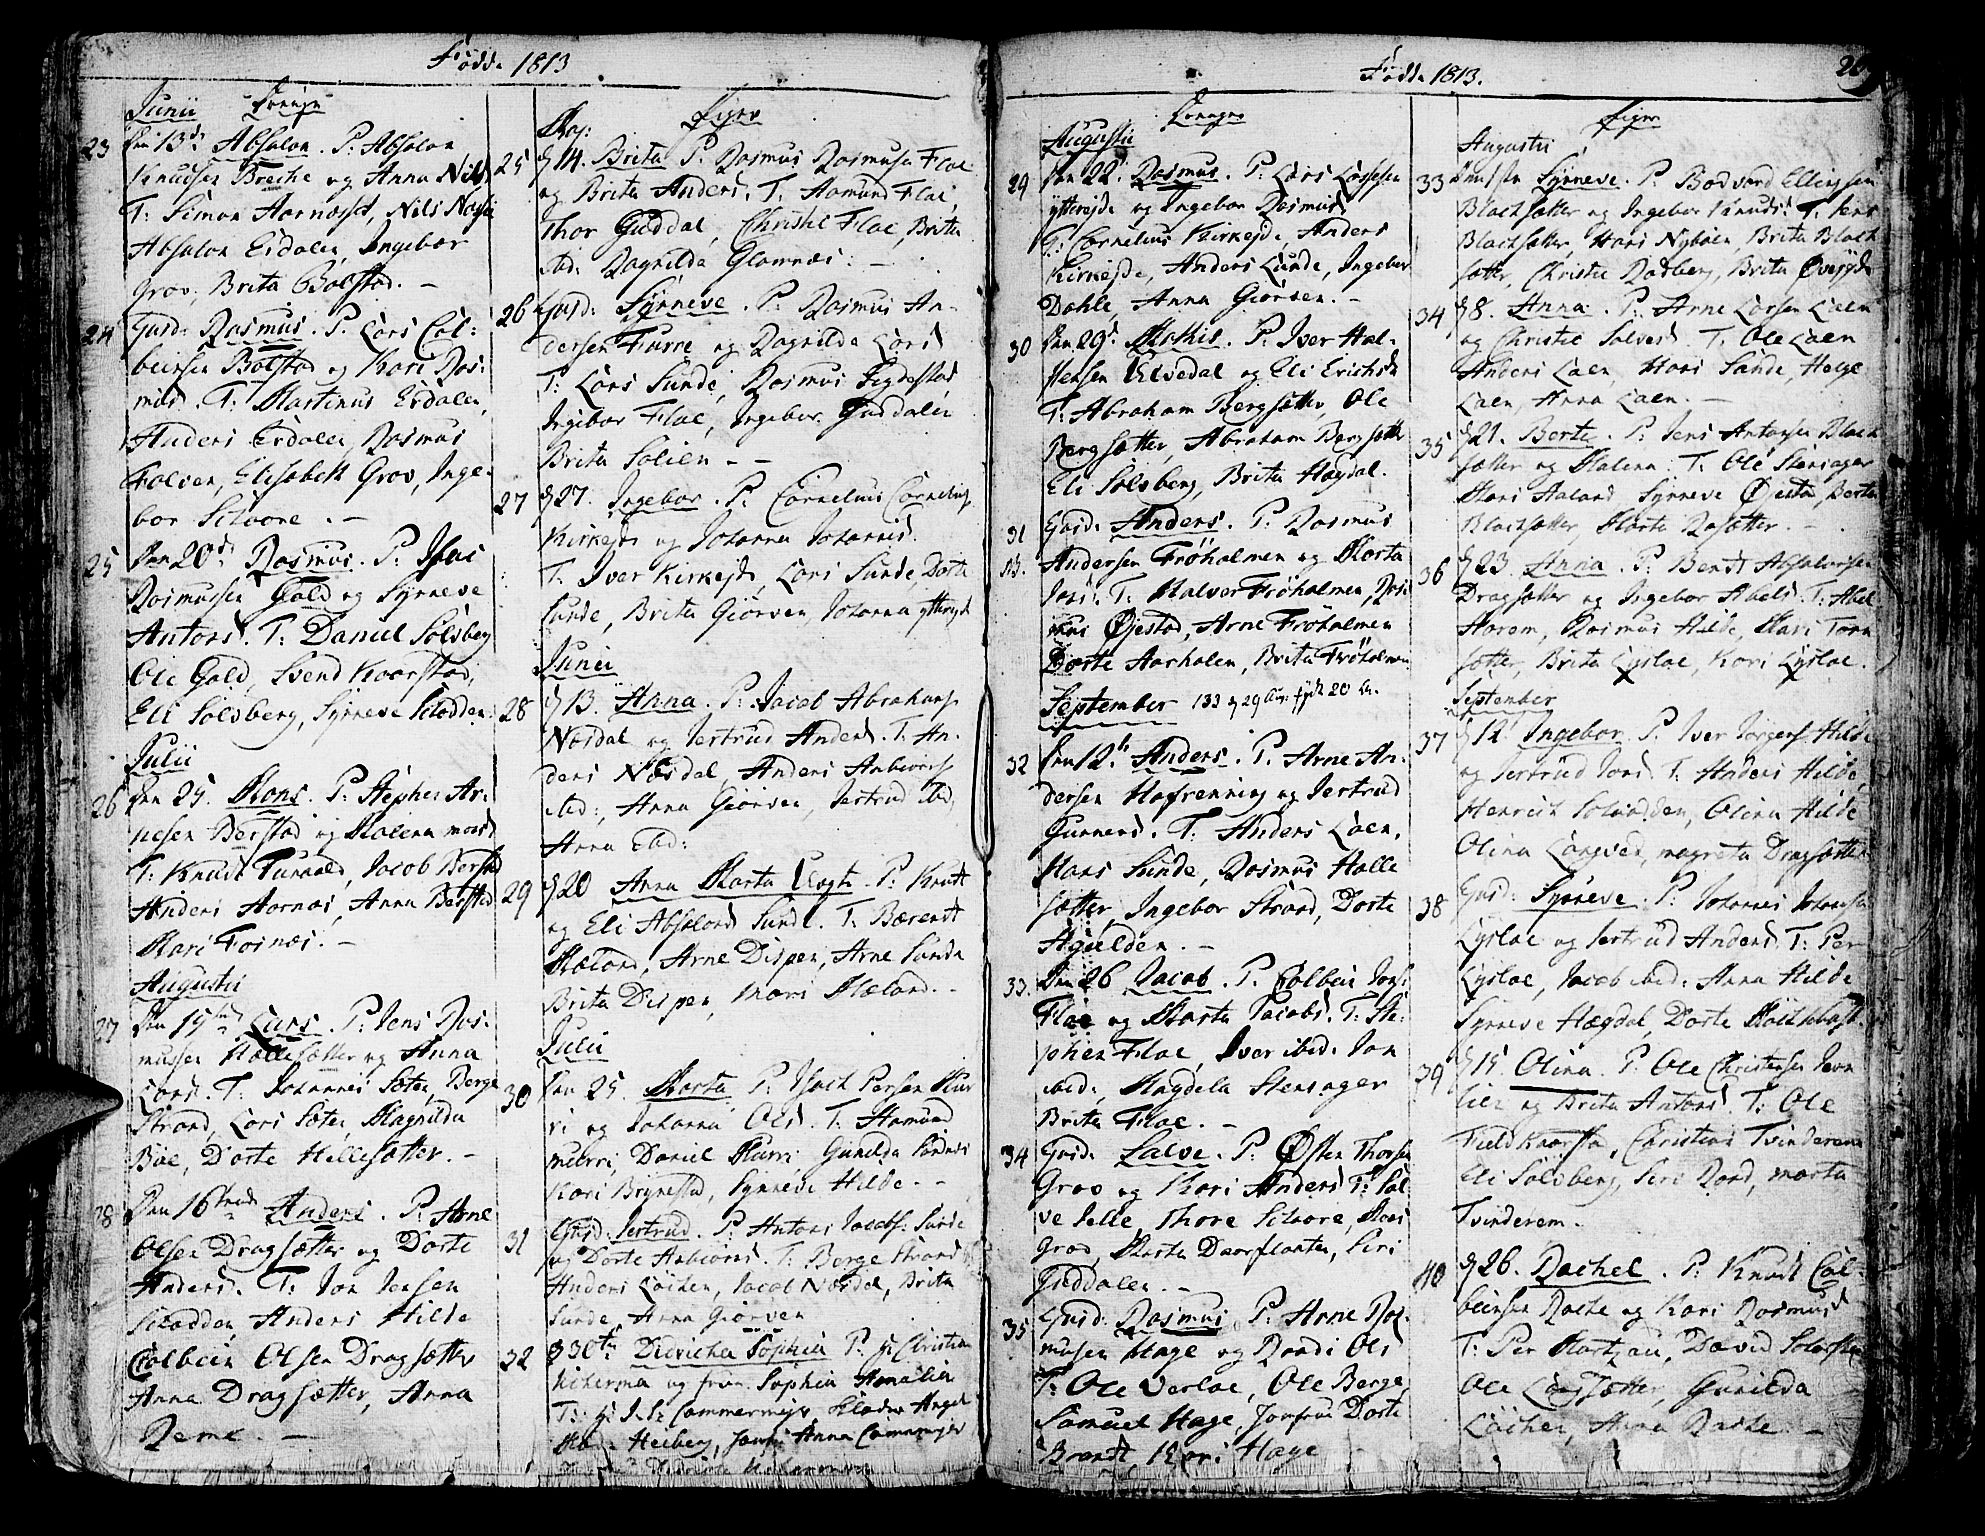 Fødde 1813
Junii Drenge
23 den 13de Absalon. P: Absalon
Knudsen Breche og Anna Nilsd
T: Simon Aarnæsset, Nils
Absalon Erdalen, Ingebor
Grov, Brita Bolstad. -
24 Eusd: Rasmus. P. Lars Col:
beinsen Bolstad og Kari Ras:
musd. T: Martinus Erdalen,
Anders Erdalen, Rasmus
Folven, Elisabeth Grov, Inge:
bor Sitvore. -
25 Den 20de Rasmus. P: Isac
Rasmussen Gald og Synneve
Antonsd. T: Daniel Solsberg
Ole Gald, Svend Kaarstad,
Eli Solsberg, Synneve Skodden.
Julii
26 den 25. Mons. P: Stephen Ar:
nesen Berstad og Malena monsd
T: Knud Tunold, Jacob Berstad
Anders Aarnæs, Anna Berstad
Mari Fosnæs. -
Augustii
27 Den 15de Lars. P: Jens Ras:
musen Hællesætter og Anna
Larsd. T: Johannes Sæter, Berge
Strand, Lars Sæter, Magnilda
Bøe, Dorte Hellesætter. -
28 Den 16tende Anders. P: Arne
Olsen Dragsætter og Dorte
Andersd. T: Jon Jensen
Skodden, Anders Hilde
Colbein Olsen Dragsætter
Anna Dragsætter, Anna
Reme. -
Piger
Maj:
25 d 14. Brita P: Rasmus Rasmusen Flae
og Brita Andersd. T: Aamund Flae,
Thor Guddal, Christie Flae, Brita
ibd: Ragnilda Glomnæs. -
26 Eusd: Synneve. P: Rasmus An:
dersen Furre og Ragnilda Larsd
T: Lars Sunde, Rasmus
Ingebor Flae, Ingebor Guddalen
Brita Solien - -
27 d 27. Ingebor. P: Cornelius Cornelius
Kirkejde og Johanna Johannesd.
T: Iver Kirkejde, Lars Sunde, Dorte
Sunde, Brita Giørven, Johanna ytterejde
Junii
28 d 13. Anna. P: Jacob Abrahams
Næsdal og Jertrud Andersd. T: An:
ders Næsdal, Anders Anbiørns
ibd:, Anna Giørven, Jertrud ibd,
Anna ibd:
29 d 20 Anna Marta Vogt. P: Knudt
og Eli Absalonsd Sunde. T: Bærendt
Mæland, Arne Dispen, Arne Sunde
Brita Dispen, Mari Mæland. -
Julii
30 den 25. Marta P: Isach Persen Mur
ri og Johanna Olsd. T: Aamund
murri, Daniel Murri Gunilda
Kari Brynestad, Synneve Hilde. -
31 Eusd: Jertrud. P: Antoni Jacobs: Sunde
og Dorte Anbiørnsd. T: Berge Strand
Anders Løchen, Jacob Næsdal, Brita
Sunde, Anna Giørven
32 d 30te Didricha Sophia P: Hr Christian
og frue Sophia Amalia
T: Cammermejer
Heiberg, Jomfr: Anna Cammermejer
Fødde 1813.
Drenge
Augustii
29 Den 22. Rasmus. P: Lars Lassesen
ytterejde og Ingebor Rasmusd
T: Cornelius Kirkejde, Anders
Kirkejde, Anders Sunde, Ingebor
Dahle, Anna Giørven. -
30 Den 29de Mathis. P: Iver Hal-
stensen Ulvedal og Eli Erichsd
T: Abraham Bergsætter, Ole
Bergsætter, Abraham Bergsætter
Eli Solsberg, Brita Høgdal.
31 Eusd: Anders. P: Rasmus
NB. Andersen Frøholmen og Marta
Jonsd. T: Halvor Frøholmen, Ras
mus Øjestad, Arne Frøholmen
Dorte Aarholen, Brita Frøholmen
September 133 d 29 Aug: 20
32 den 12te Anders. P: Arne An:
dersen Hafrenning og Jertrud
Gunnersd. T: Anders Loen,
Hans Sunde, Rasmus Halle
sætter, Ingebor Strand, Dorte
Aguldden. -
33. Den 26 Jacob. P: Colbein Jons
Flae og Marta Jacobsd. T: Ste:
phen Flae, Iver ibid: Jon
ibid:, Magdela Stensager
Brita Flae. -
34 Eusd: Salve. P: Østen Thorsen
Grov og Kari Andersd T: Sal
ve Jelle, Thore Sitvore, Mari
Grov, Marta Daarflaaten, Siri
Guddalen. -
35 Eusd: Rasmus. P: Arne Ras:
musen Hage og Randi Olsd
T: Ole Værlae, Ole Berge,
Samuel Hage, Jomfrue Dorte
Brandt, Kari Hage
Piger
Augustii
33 Synneve. P: Bodvard Ellingsen
Blachsætter og Ingebor Knudsd. T: Jens
Blachsætter, Hans Nybøen, Brita Blach
sætter, Christie Rødberg, Brita
34 d 8. Anna. P: Arne Larsen Loen
og Christie Salvesd. T: Ole Loen
Anders Loen, Mari Sunde, Helge
Loen, Anna Loen. -
35 d 21. Berte. P: Jens Antonsen Blach
sætter og Malena. T: Ole Stensager
Mari Aaland Synneve Øjestad, Berte
Blachsætter Marta Rosætter -
36 d 23. Anna. P: Bendt Absalonsen
Dragsætter og Ingebor Abelsd. T: Abel
Horem, Rasmus Hilde, Mari Torn
sætter, Brita Lysloe, Kari Lysloe.
September
37 d 12 Ingebor P. Iver Jorgens Hilde
og Jertrud Jonsd. T: Anders Hilde,
Henrich Skaadden, Olina Hilde
Olina Langsed, magreta Dragsætter
38 Eusd: Synneve. P: Johannes Johansen
Lysloe og Jertrud Andersd. T: Per
Lysloe, Jacob ibd: Anna Hilde
Synneve Hægdal, Dorte
39 d 15. Olina. P. Ole Christensen
lien og Brita Antonsd. T: Ole
Field Kaarsta, Christian Tvinderem
Eli Solsberg, Siri Rand, marta
Tvinderem.
40 d 26. Rachel. P: Knudt Col-
beinsen Rache og Kari Rasmusd
T: Per David
Ole Langsætter, Gunilda
Løchen, Anna Rache. -